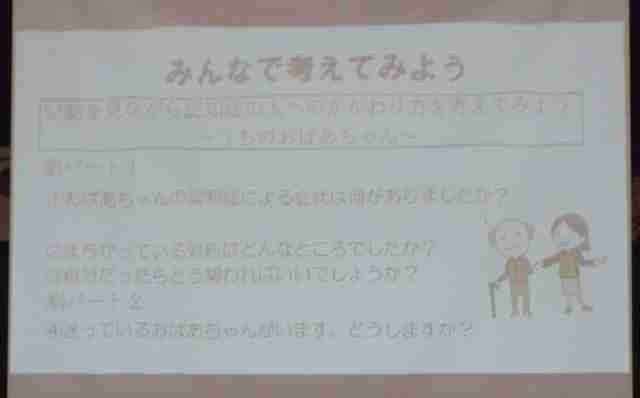 みんなで考えてみよう
寸劇を見ながら認知症の人へのかかわり方を考えてみよう
～うちのおばあちゃん～
劇パート1
①おばあちゃんの認知症による症状は何がありましたか？
②まちがっている対応はどんなところでしたか？
③自分だったらどう関わればいいでしょうか？
劇パート2
④迷っているおばあちゃんがいます。どうしますか？